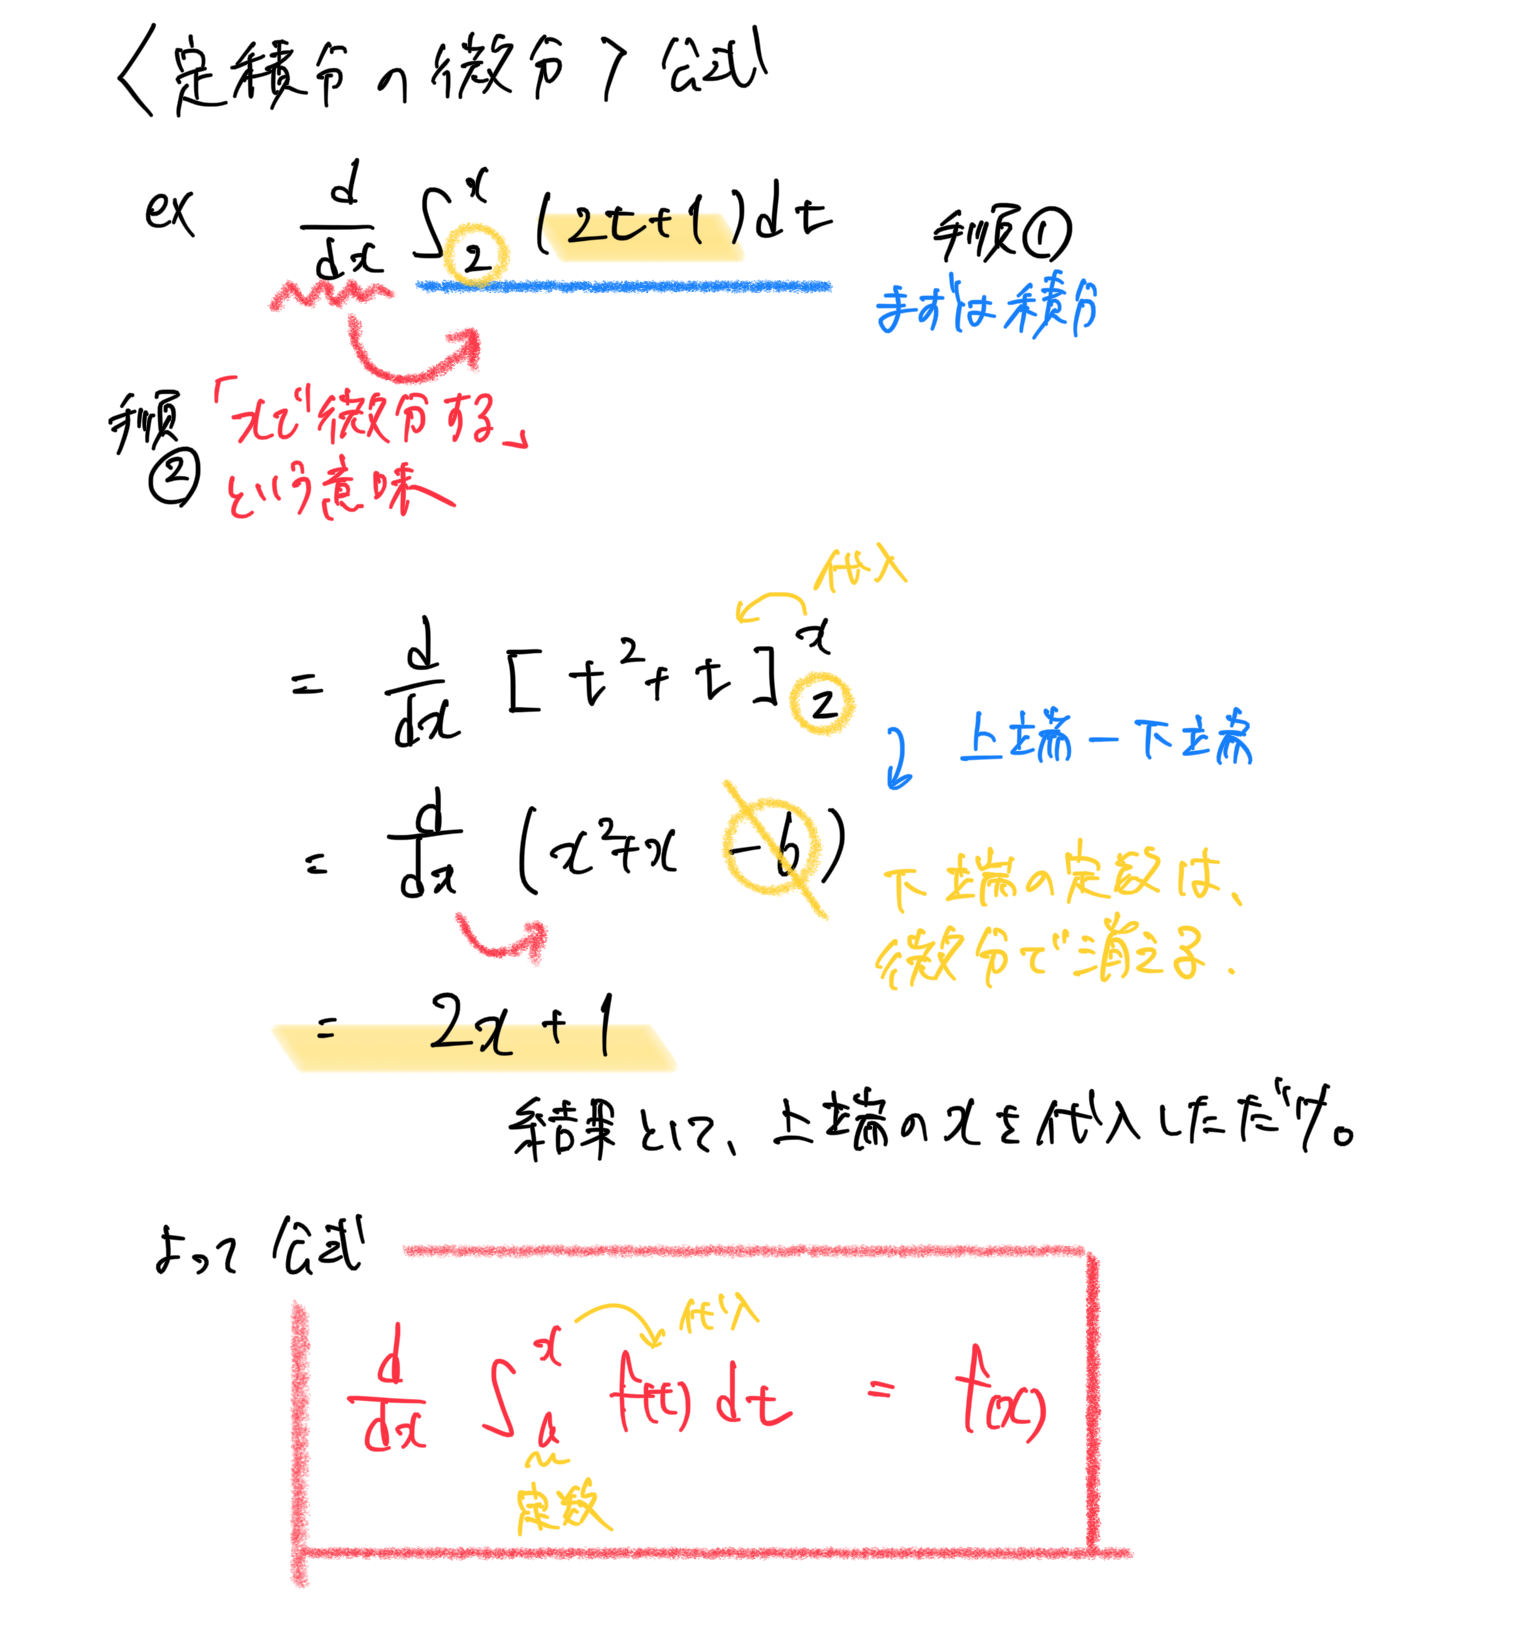 〈定積分の微分〉公式
ex d/dx ∫₂ˣ (2t+1)dt 手順①
まずは積分
手順② 「xで微分する」
という意味
代入
= d/dx [t²+t]ˣ₂
上端－下端
= d/dx (x²+x -6)
下端の定数は、
微分で消える.
= 2x+1
結果として、上端のxを代入しただけ。
よって 公式
代入
d/dx ∫ₐˣ f(t) dt = f(x)
定数